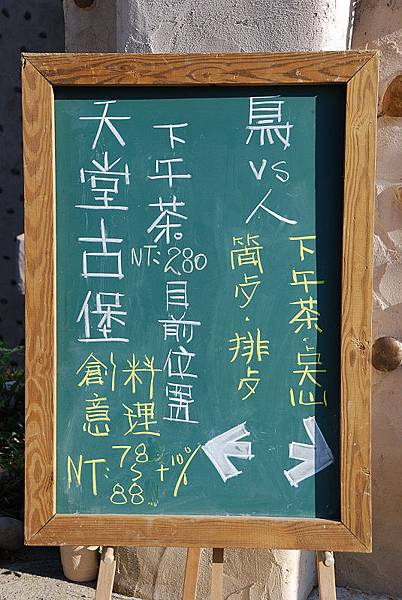 鳥vs人
下午茶.
簡歺.排歺
天堂古堡
下午茶。
NT:280
目前位置
創意
料理
NT:78~88 +10%